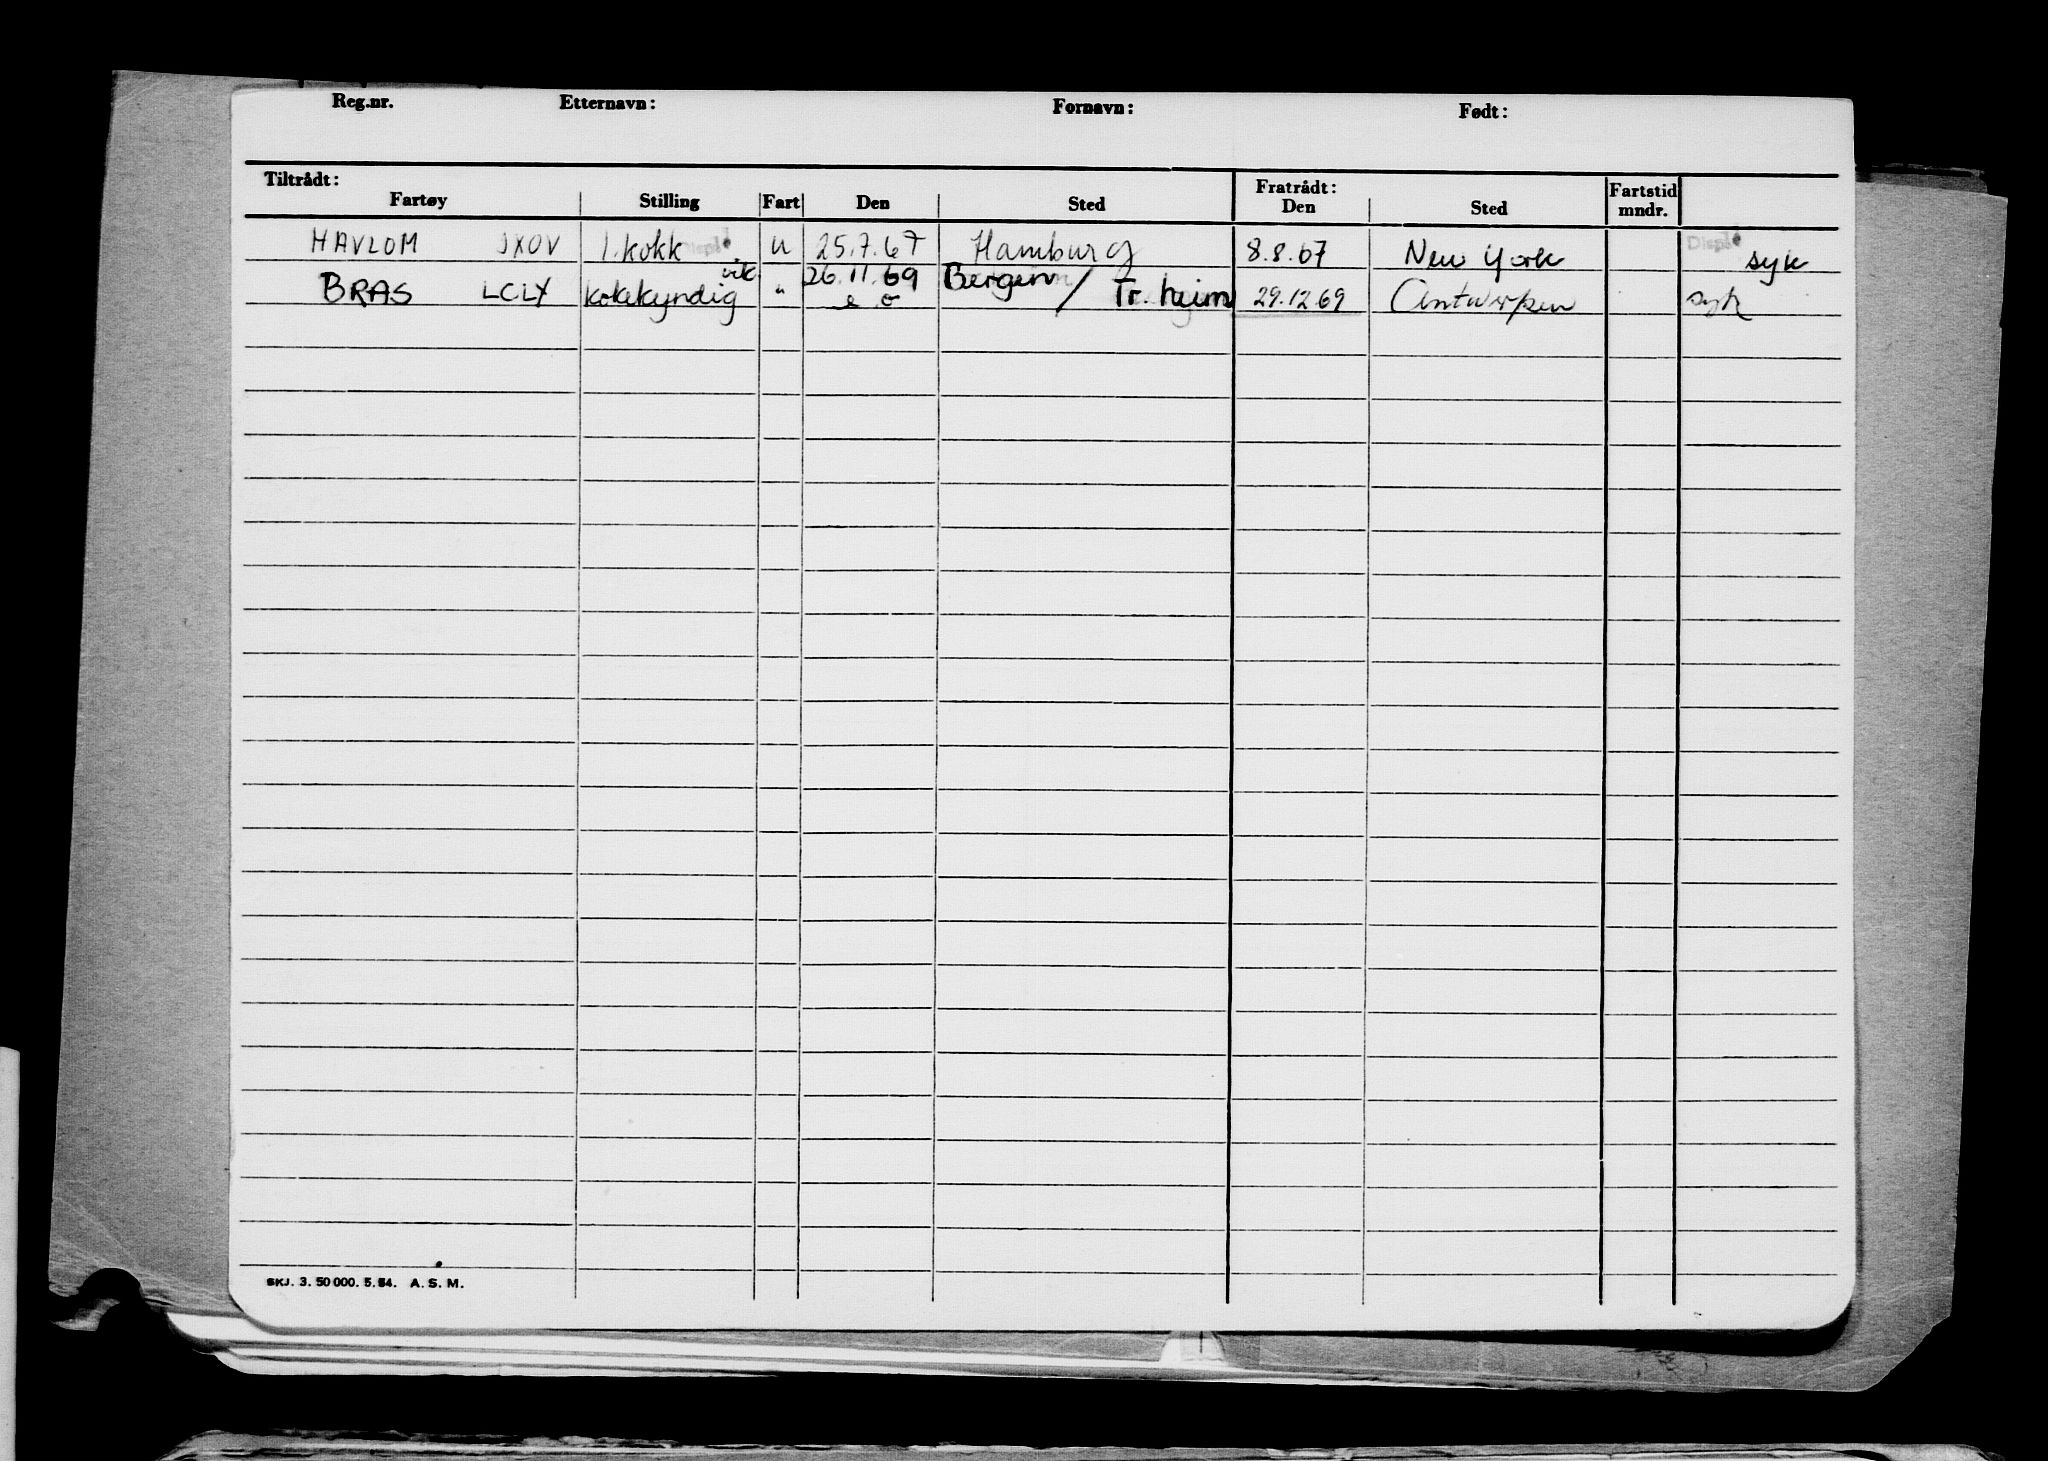 Reg.nr. Etternavn: Fornavn: Født:
Tiltrådt: Fratrådt: Fartstid
Fartøy Stilling Fart Den Sted Den Sted mndr.
HAVLOM JXOV 1.kokk Disp. u 25.7.67 Hamburg 8.8.67 New York Disp. syk
BRAS LCLY kokekyndig vik " 26.11.69 Bergen / Tr.heim 29.12.69 Antwerpen syk
SKJ. 3. 50 000. 5.54. A. S. M.